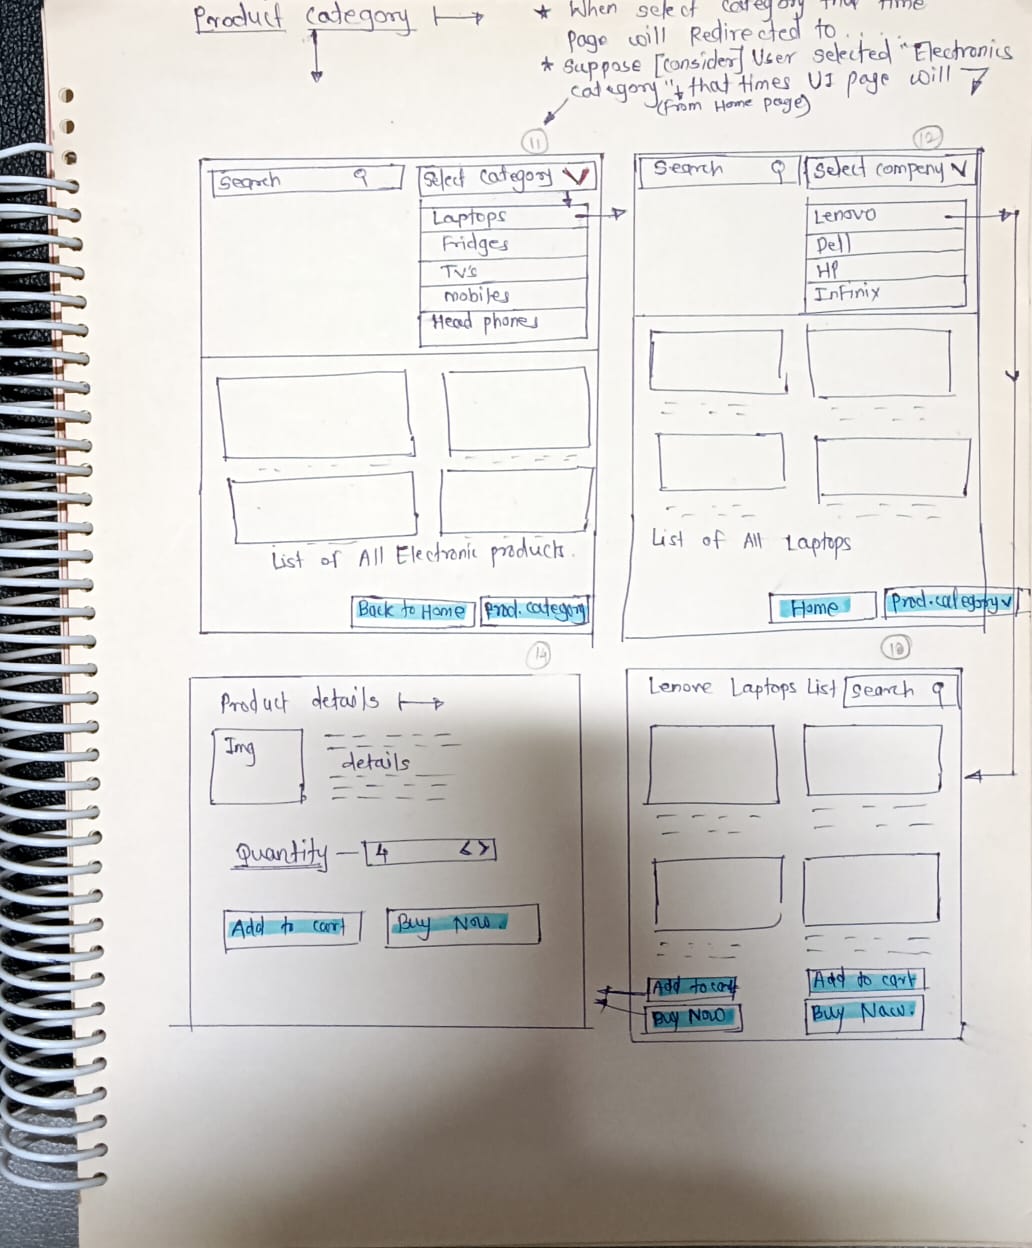 Product Category
* When select category that time
Page will Redirected to . . . .
* Suppose [consider] User selected "Electronics
category", that times UI page will
(From Home page)
11
Search
Select Category
Laptops
Fridges
Tv's
mobiles
Head phones
List of All Electronic products.
Back to Home
Prod. category
12
Search
Select compeny
Lenovo
Dell
HP
InFinix
List of All Laptops
Home
Prod. category
14
Product details
Img
details
Quantity - 4 < >
Add to cart
Buy Now.
13
Lenove Laptops List
Search
Add to cart
Buy Now
Add to cart
Buy Now.